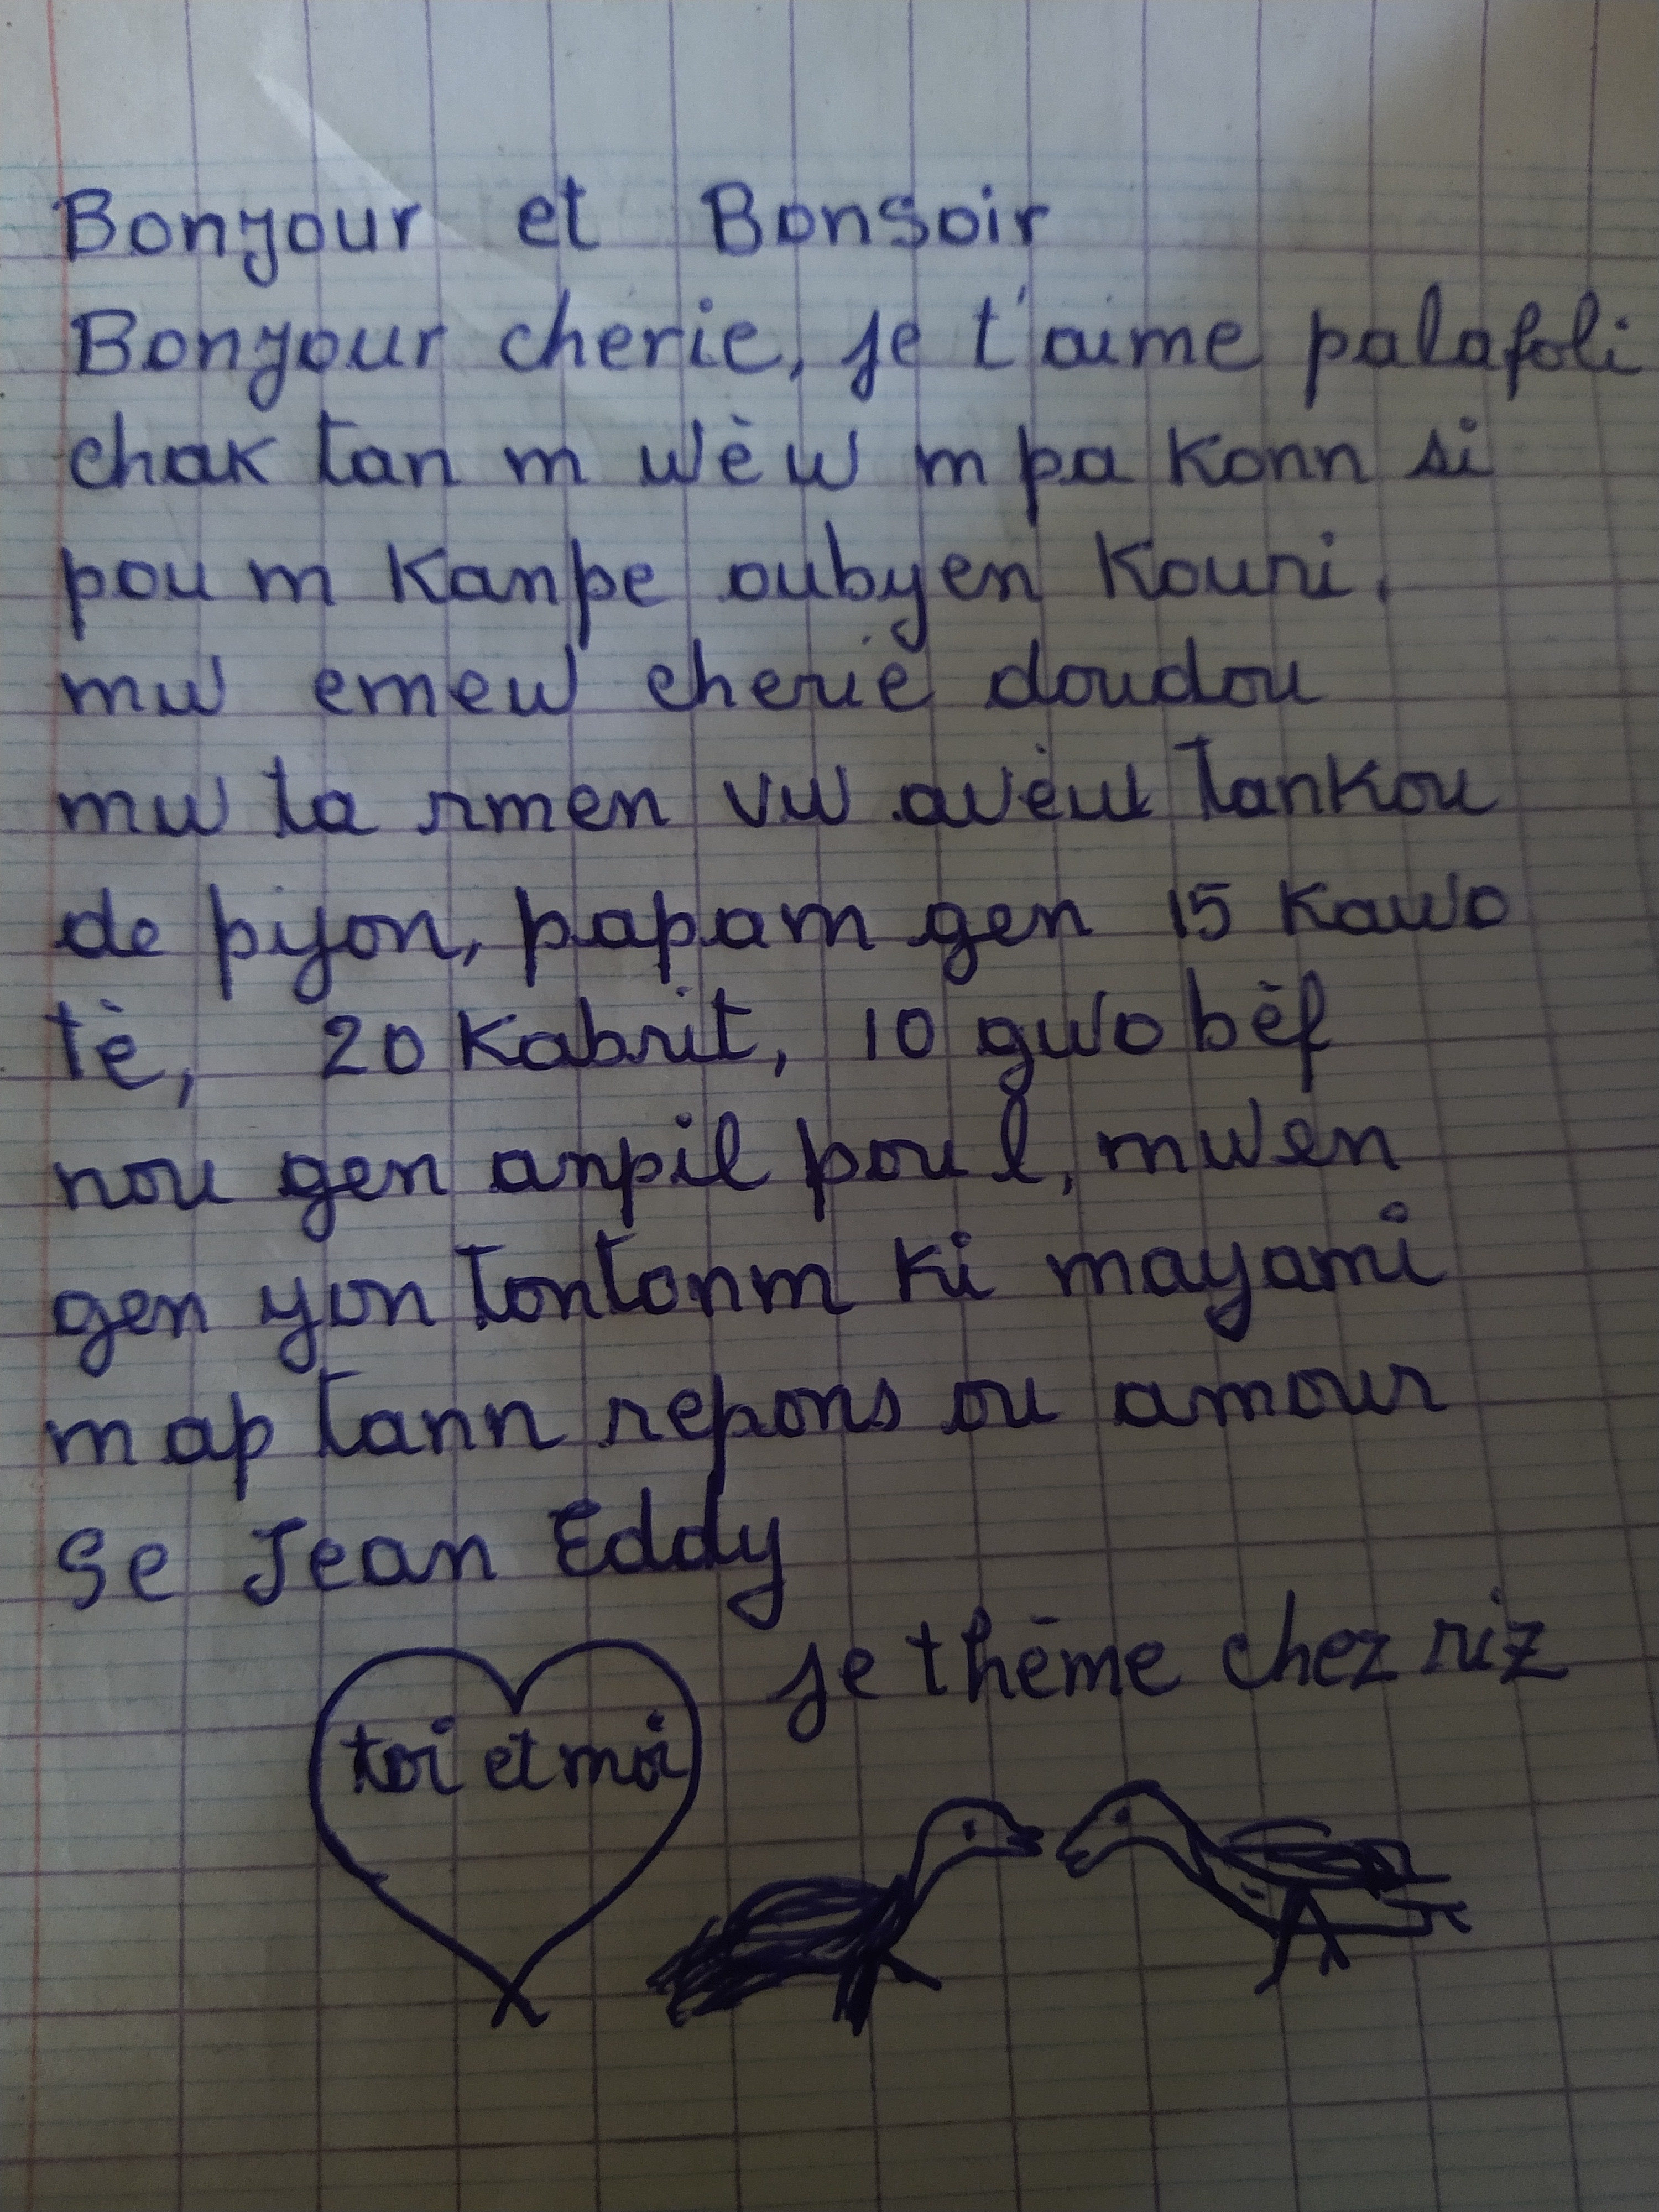 Bonjour et Bonsoir
Bonjour cherie, je t'aime palafoli
chak tan m wèw m pa konn si
pou m kanpe oubyen kouri.
mw emew cherie doudou
mw ta rmen vw avèw tankou
de pijon, papam gen 15 kawo
tè, 20 kabrit, 10 gwo bèf
nou gen anpil poul, mwen
gen yon tontonm ki mayami
map tann repons ou amour
Se Jean Eddy
je thème chez riz
toi et moi